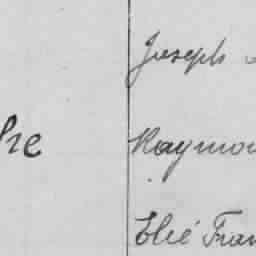 Joseph
Raymon
Elié Fran